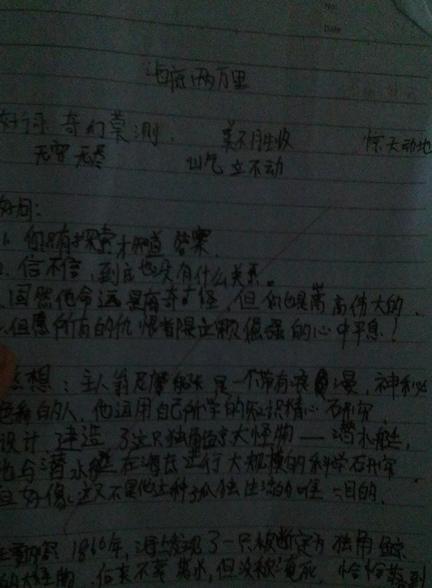 海底两万里
好词: 奇幻莫测 美不胜收 惊天动地
无穷无尽 屹立不动
好句:
1. 你只有探索才知道答案。
2. 信不信,到底也没有什么关系。
固然他命运是离奇古怪,但他也是崇高伟大的。
但愿所有的仇恨都在这颗倔强的心中平息!
感想:主人翁尼摩船长是一个带有浪漫,神秘
色彩的人,他运用自己所学的知识精心研究
设计,建造了这只独角鲸大怪物——潜水艇,
他与潜水艇在海底进行大规模的科学研究
但好像这又不是他这种孤独生活的唯一目的。
1866年,海上发现了一只被断定为独角鲸
的大怪物,